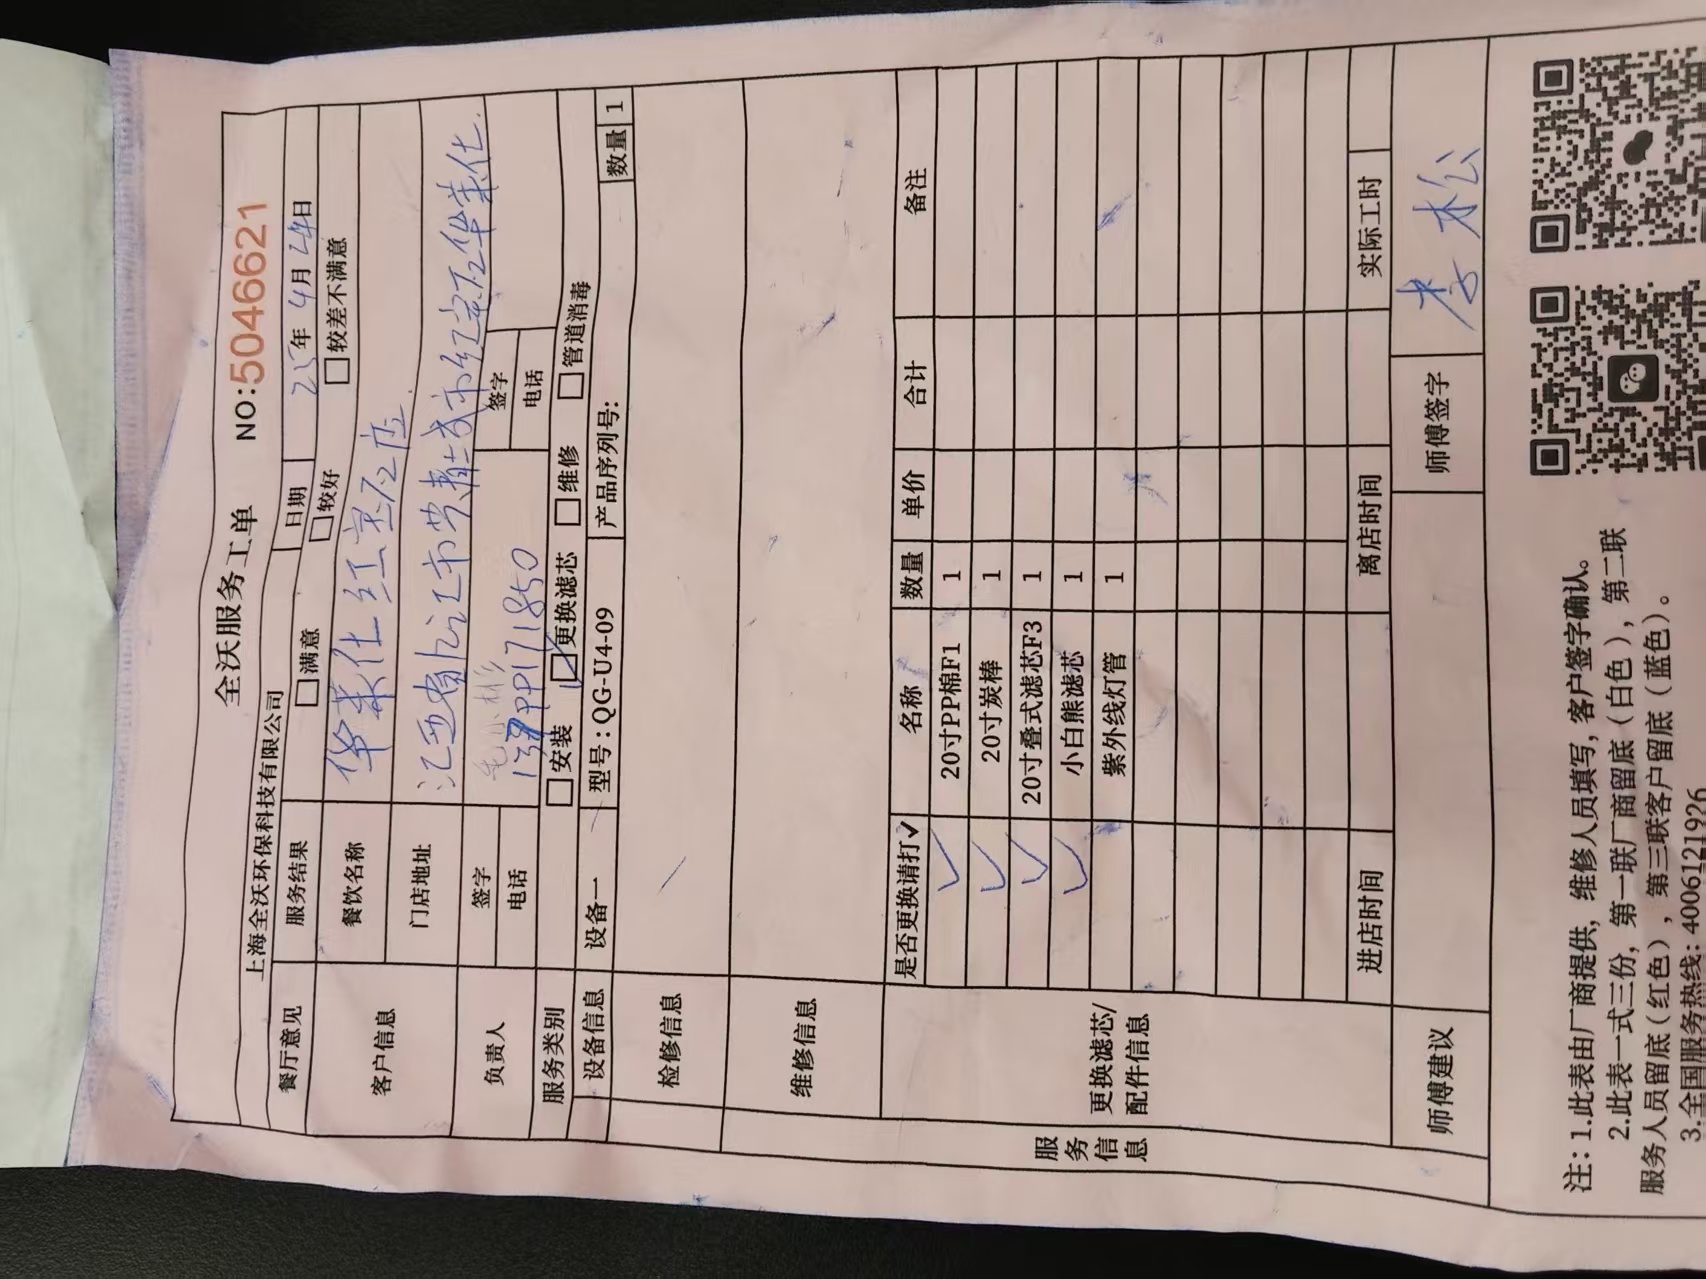 全沃服务工单 NO:5046621
上海全沃环保科技有限公司 日期 25年4月24日
餐厅意见 服务结果 满意 较好 较差不满意
客户信息 餐饮名称 华莱仕红宝石店
门店地址 江西省九江市共青城市红宝石华莱仕
负责人 签字 签字
电话 电话
服务类别 安装 更换滤芯 维修 管道消毒
设备信息 设备一 型号:QG-U4-09 产品序列号: 数量 1
检修信息
维修信息
服务信息
更换滤芯/配件信息
是否更换请打✓ 名称 数量 单价 合计 备注
✓ 20寸PP棉F1 1
✓ 20寸炭棒 1
✓ 20寸叠式滤芯F3 1
✓ 小白熊滤芯 1
紫外线灯管 1
进店时间 离店时间 实际工时
师傅建议 师傅签字 李松
注:1.此表由厂商提供,维修人员填写,客户签字确认。
2.此表一式三份,第一联厂商留底(白色),第二联
服务人员留底(红色),第三联客户留底(蓝色)。
3.全国服务热线:4006121926